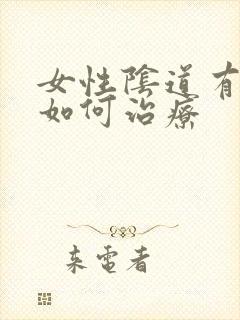 女性陰道有
如何治療
来電者